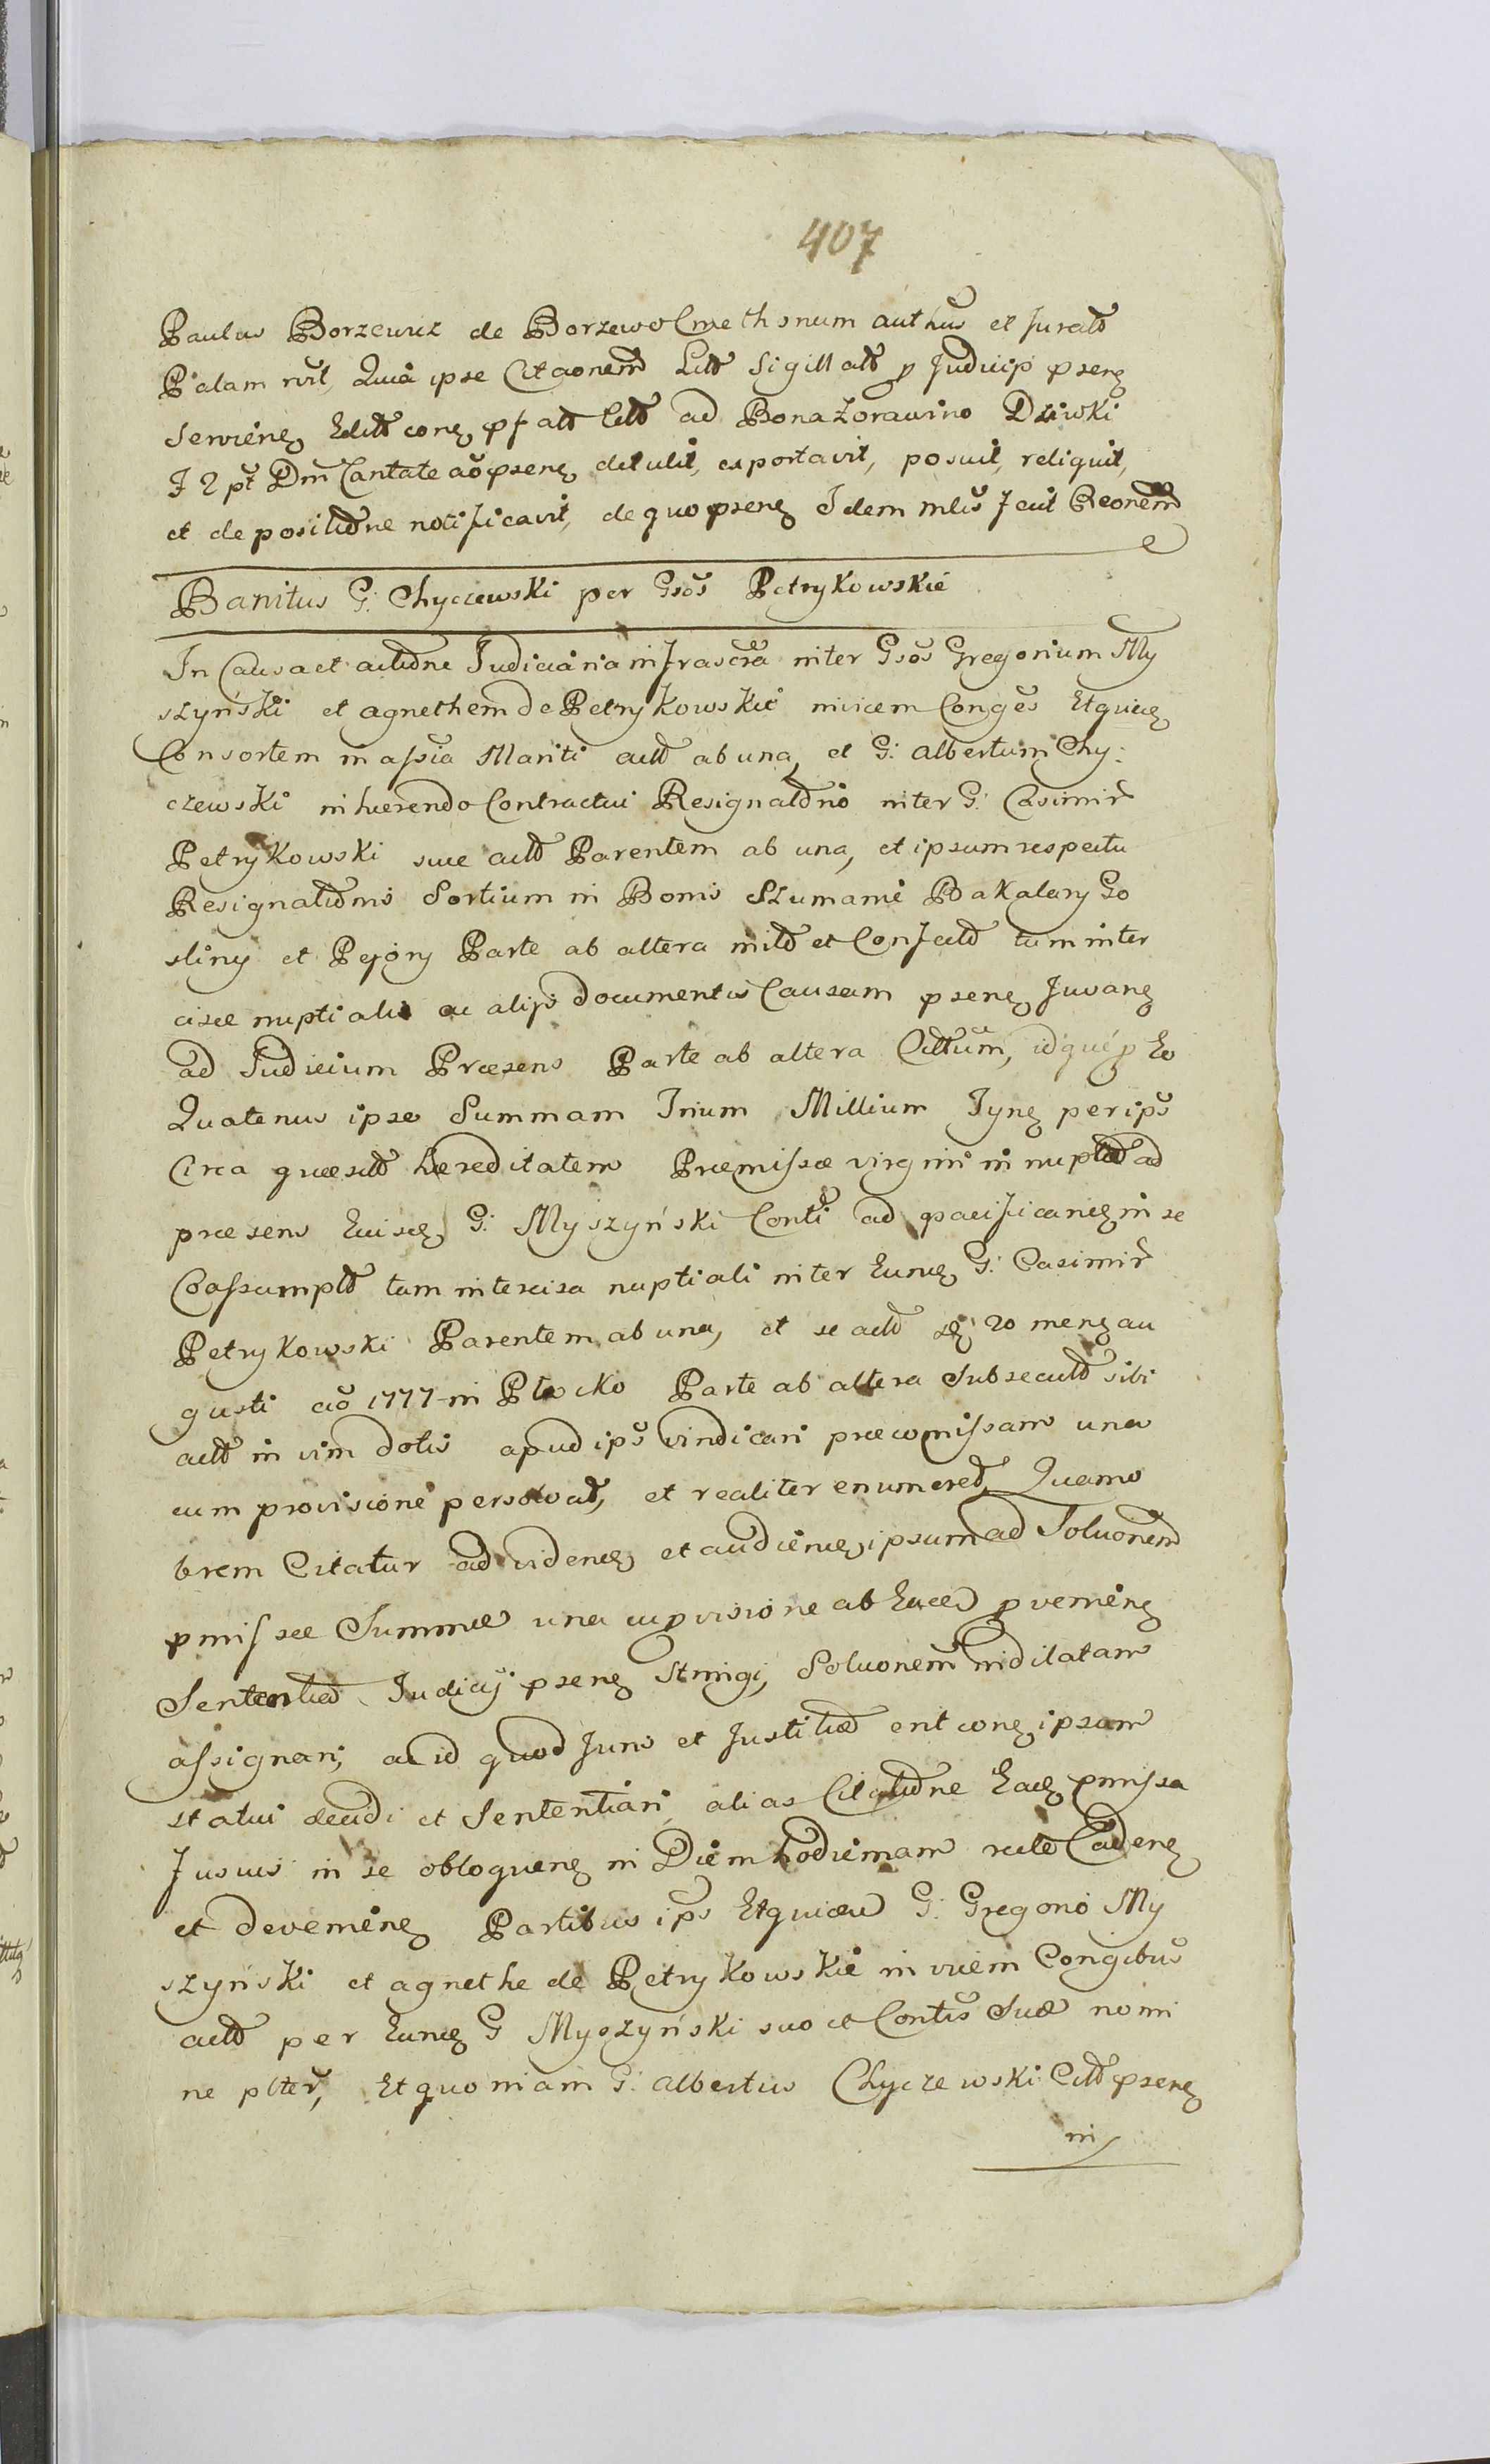 407
Paulus Borzewicz de Borzewo Cmethonum authūs et Jurato
Palam rvit, Quia ipse Citaonem Litt Sigillatt p Judicip psenq
Servienq Editt conq pfatt Citt ad Bona Zorawino Dziwki
F 2 pt Dm Cantate ao psenq detulit, exportavit, posuit, reliquit,
et de positione notificavit, de quo psenq Idem mlis fecit Reonem
Banitus G: Chyczewski per Gsos Petrykowskie
In Causa et actione Judiciaria infrascra inter Gsos Gregorium My
szyński et agnethem de Petrykowskie invicem Conges Etquidq
Consortem in assia Mariti actt ab una, et G: Albertum Chy:
czewski inhærendo Contractui Resignatorio inter G: Casimir
Petrykowski suæ actt Parentem ab una, et ipsum respectu
Resignationis Sortium in Bonis Szumanie Bakalary Go
sliny et Pejory Parte ab altera inito et Confecto tum inter
cisæ nuptialis ac alijs documentis Causam psenq Juvanq
ad Judicium Præsens Parte ab altera Cittum, idque p Eo
Quatenus ipse Summam Trium Millium Tynq per ips
Circa quæsitt hæreditatem Præmissæ virgini innuptæ ad
præsens Euisq G: Myszyński Conti ad pacificanq in se
Coassumptt tam intercisa nuptiali inter Eunq G: Casimir
Petrykowski Parentem ab una, et se actt 20 menq au
gusti ao 1777 in Plocko Parte ab altera Subsecutt sibi
actt in vim dotis apud ips vindicari præcomissam una
cum provisione persolvat, et realiter enumeret, Quamo
brem Citatur ad videnq et audienq ipsum ad Soluonem
pmissæ Summæ una cu pvisione ab Eaed pvenienq
Sententia Judicij psenq Stringi, Soluonem indilatam
assignari, ac id quod Juris et Justitiæ erit conq ipsum
statui decidi et Sententiari, alias Citatione Eadq pmissa
Fusius in se obloquenq in Diem hodiernam recte Cadenq
et devenienq Partibus ips Etquidem G: Gregorio My
szyński et agnethe de Petrykowskie invicem Congibus
actt per Eunq G Myszyński suo et Contis Suæ nomi
ne plter, Et quoniam G: Albertus Chyczewski Citt psenq
in